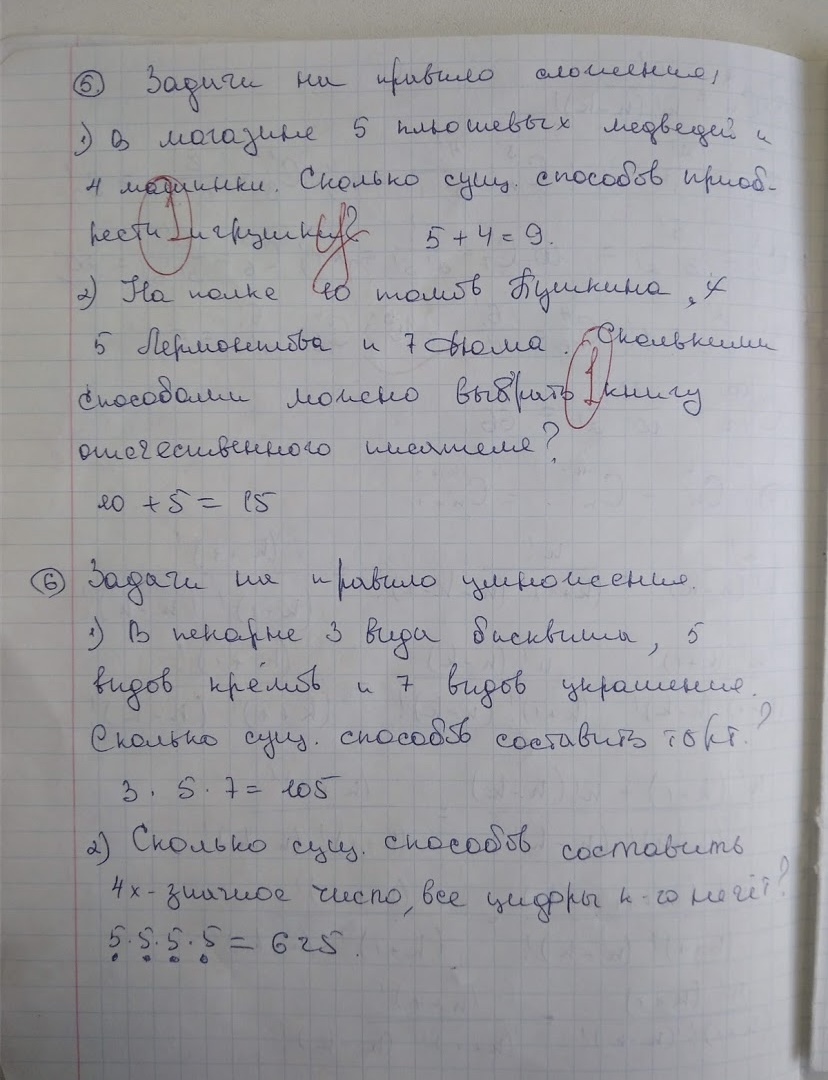 ⑤ Задачи на правило сложения,
1) В магазине 5 плюшевых медведей и
4 машинки. Сколько сущ. способов приоб-
рести 1 игрушку?    5 + 4 = 9.
2) На полке 10 томов Пушкина,
5 Лермонтова и 7 Дюма. Сколькими
способами можно выбрать 1 книгу
отечественного писателя?
10 + 5 = 15
⑥ Задачи на правило умножения.
1) В пекарне 3 вида бисквита, 5
видов кремов и 7 видов украшения.
Сколько сущ. способов составить торт.?
3 · 5 · 7 = 105
2) Сколько сущ. способов составить
4х-значное число, все цифры к-го нечёт?
5 · 5 · 5 · 5 = 625.